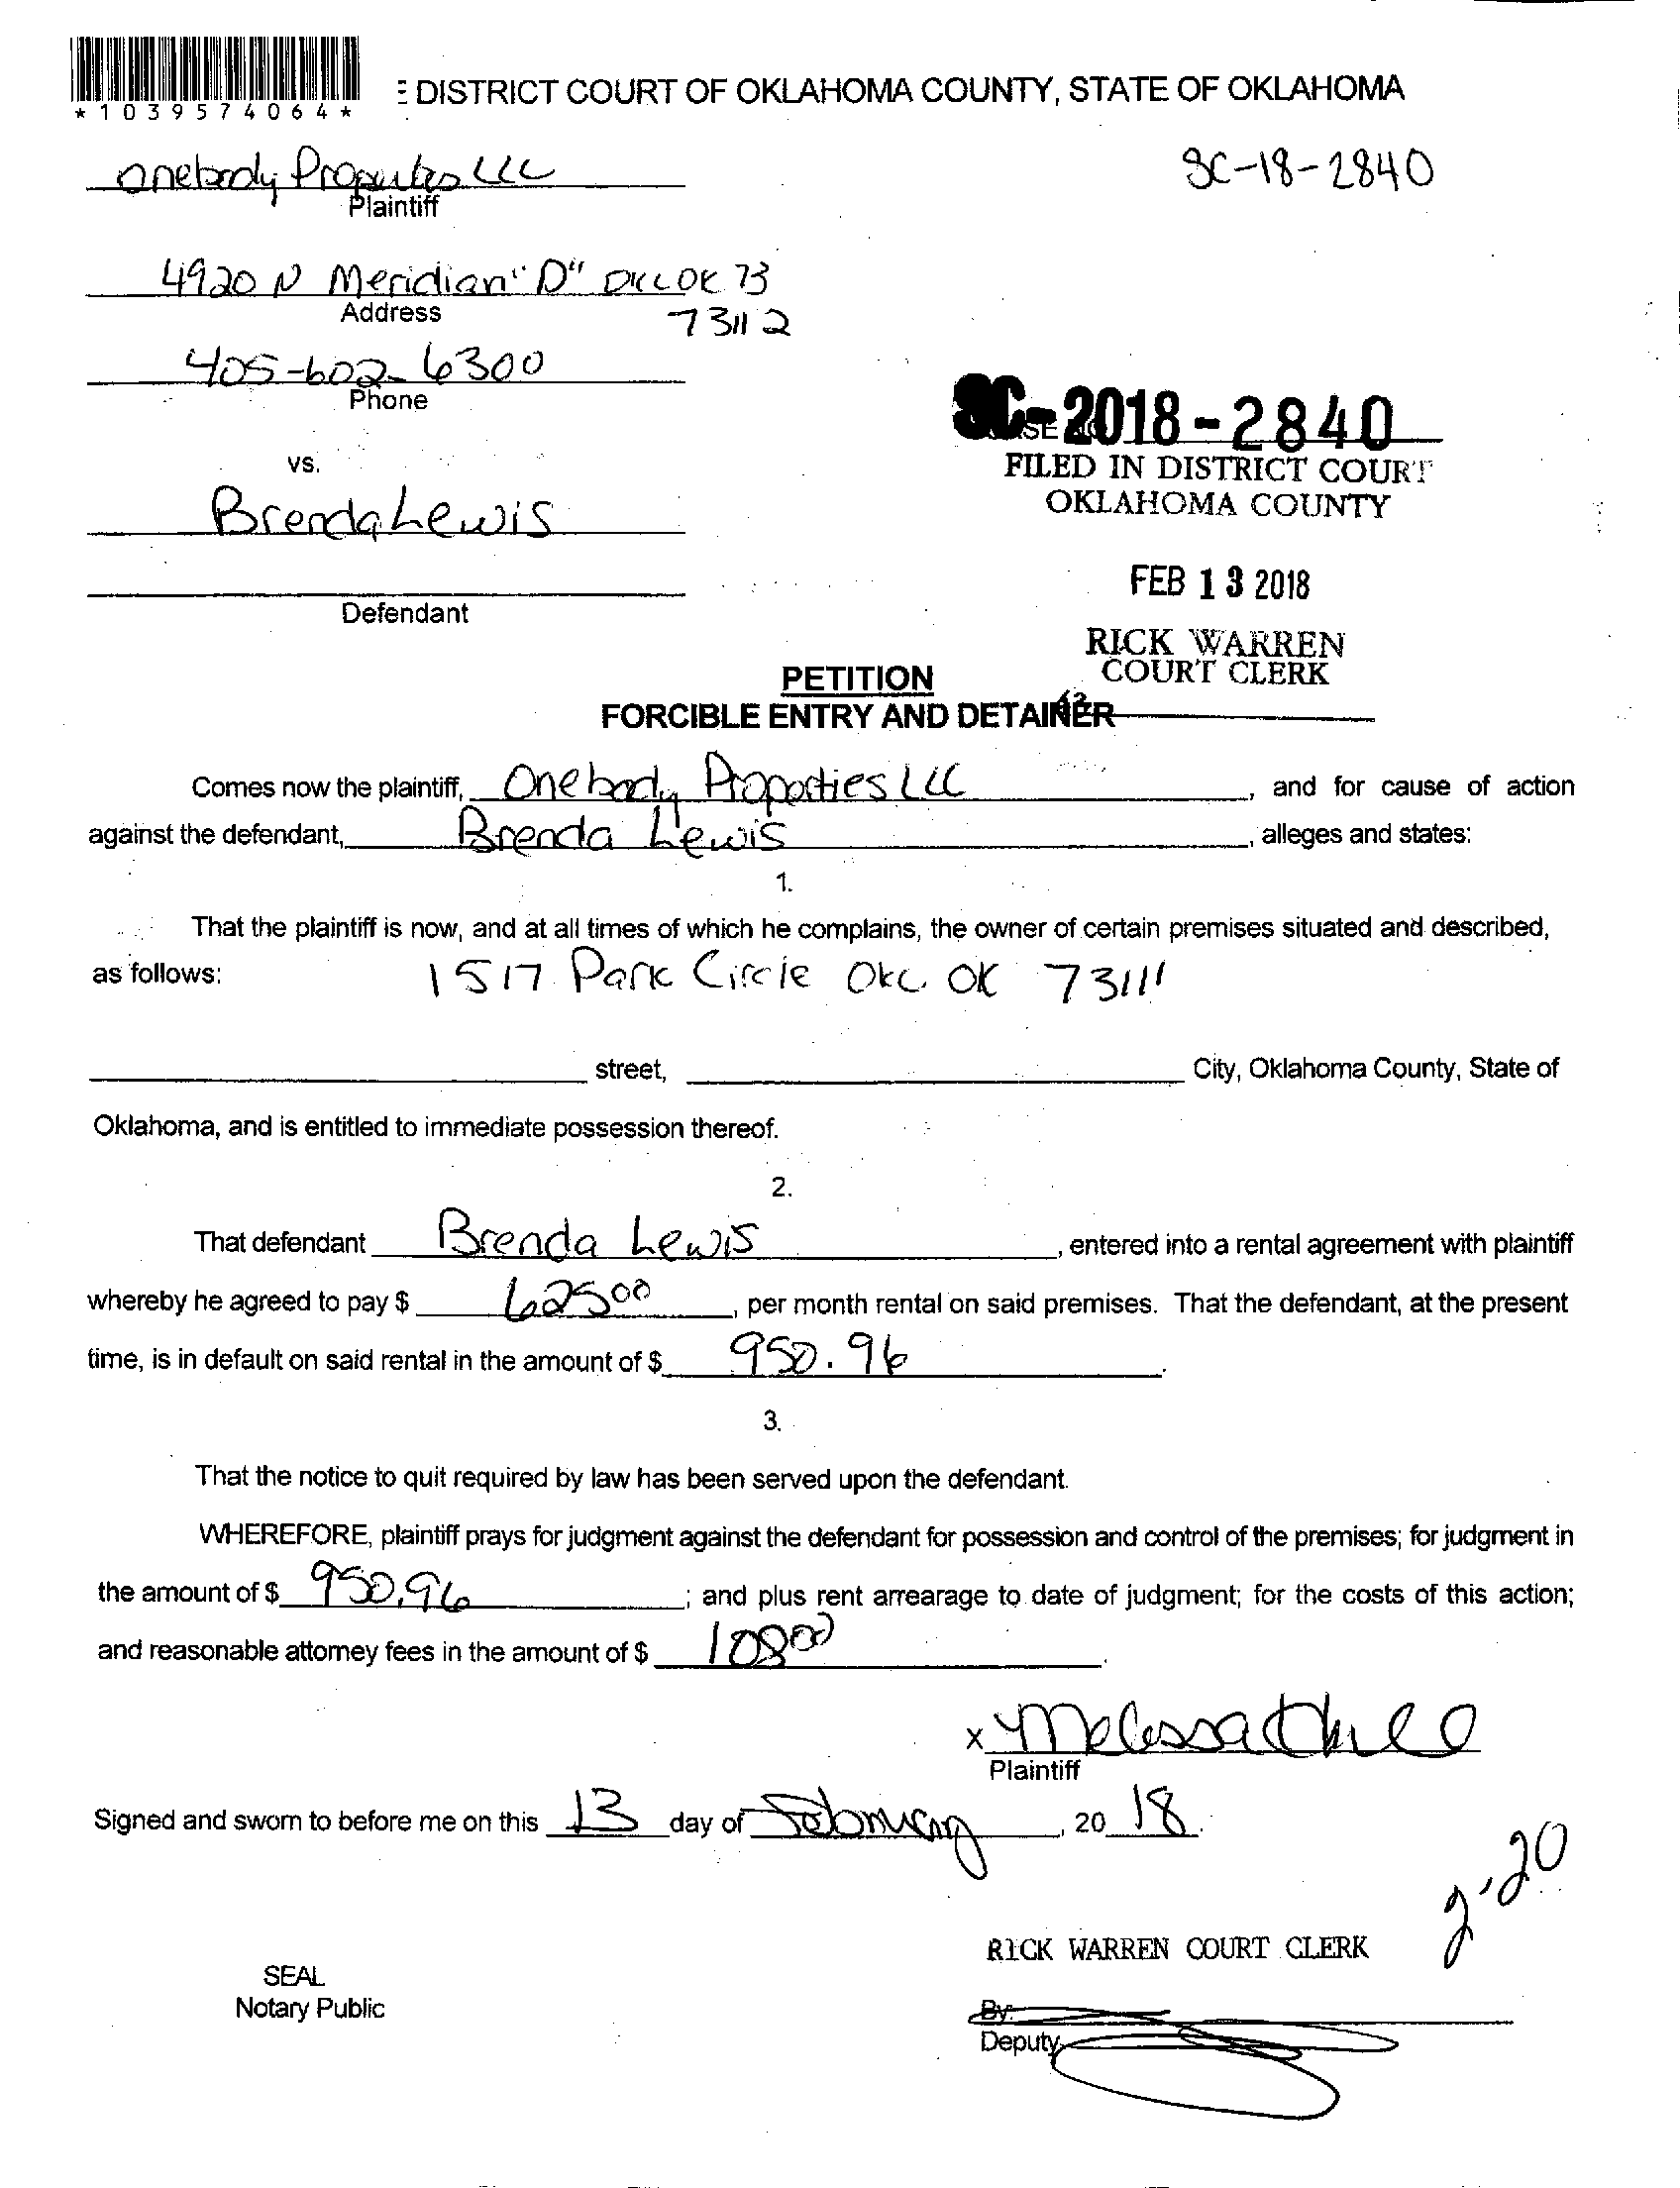 *1039574064*
E DISTRICT COURT OF OKLAHOMA COUNTY, STATE OF OKLAHOMA
Onebody Properties LLC
Plaintiff
SC-18-2840
4920 N Meridian "D" OKC OK 73
Address
73112
405-602-6300
Phone
SC-2018-2840
FILED IN DISTRICT COURT
OKLAHOMA COUNTY
vs.
Brenda Lewis
FEB 13 2018
Defendant
RICK WARREN
COURT CLERK
PETITION
FORCIBLE ENTRY AND DETAINER
Comes now the plaintiff, Onebody Properties LLC, and for cause of action
against the defendant, Brenda Lewis, alleges and states:
1.
That the plaintiff is now, and at all times of which he complains, the owner of certain premises situated and described,
as follows: 1517 Park Circle OKC. OK 73111
street, City, Oklahoma County, State of
Oklahoma, and is entitled to immediate possession thereof.
2.
That defendant Brenda Lewis, entered into a rental agreement with plaintiff
whereby he agreed to pay $ 625 00, per month rental on said premises. That the defendant, at the present
time, is in default on said rental in the amount of $ 950.96.
3.
That the notice to quit required by law has been served upon the defendant.
WHEREFORE, plaintiff prays for judgment against the defendant for possession and control of the premises; for judgment in
the amount of $ 950.96; and plus rent arrearage to date of judgment; for the costs of this action;
and reasonable attorney fees in the amount of $ 108 00.
x Melissa
Plaintiff
Signed and sworn to before me on this 13 day of February, 20 18.
2-20
RICK WARREN COURT CLERK
SEAL
Notary Public
By:
Deputy